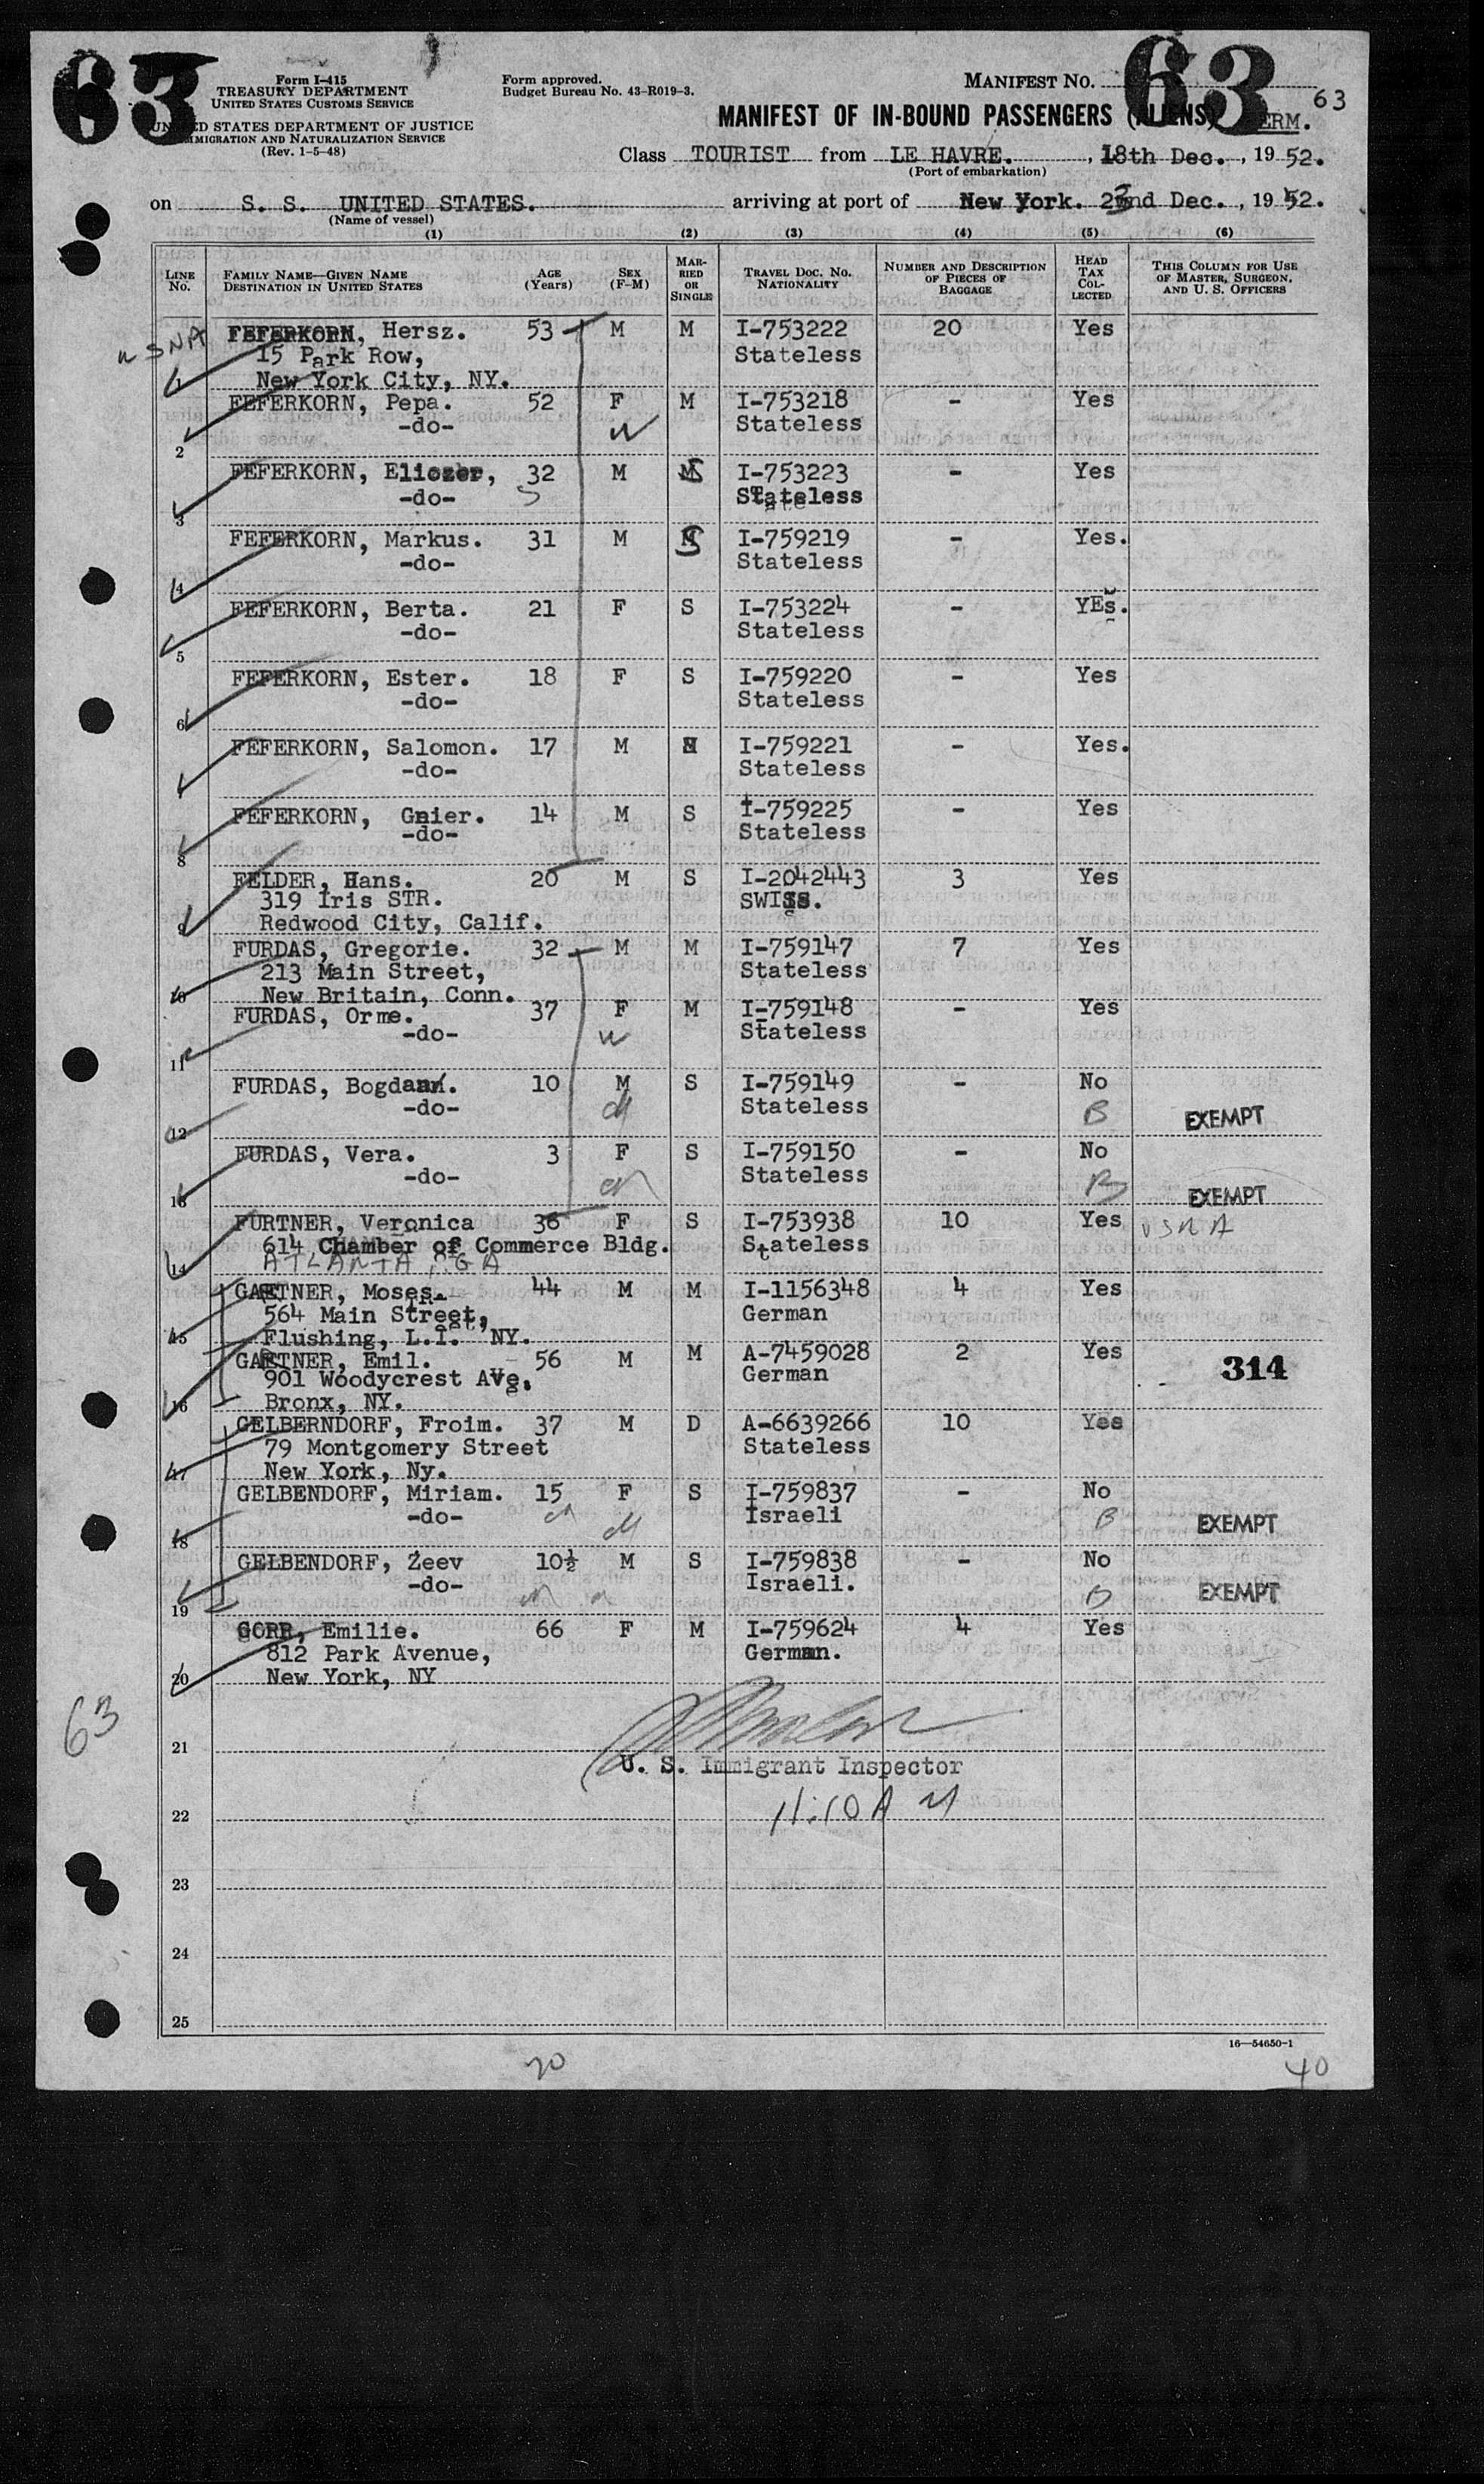 63
63
63
Form I-415
TREASURY DEPARTMENT
UNITED STATES CUSTOMS SERVICE
UNITED STATES DEPARTMENT OF JUSTICE
IMMIGRATION AND NATURALIZATION SERVICE
(Rev. 1-5-48)
Form approved.
Budget Bureau No. 43-R019-3.
MANIFEST NO.
MANIFEST OF IN-BOUND PASSENGERS (ALIENS) PERM.
Class TOURIST from LE HAVRE. , 18th Dec. , 19 52.
(Port of embarkation)
on S. S. UNITED STATES. arriving at port of New York. 23nd Dec. , 19 52.
(Name of vessel)
(1) (2) (3) (4) (5) (6)
LINE No. FAMILY NAME—GIVEN NAME DESTINATION IN UNITED STATES AGE (Years) SEX (F-M) MARRIED OR SINGLE TRAVEL DOC. NO. NATIONALITY NUMBER AND DESCRIPTION OF PIECES OF BAGGAGE HEAD TAX COLLECTED THIS COLUMN FOR USE OF MASTER, SURGEON, AND U. S. OFFICERS
USNA FEFERKORN, Hersz. 53 M M I-753222 20 Yes
15 Park Row, Stateless
1 New York City, NY.
FEFERKORN, Pepa. 52 F M I-753218 - Yes
-do- W Stateless
2
FEFERKORN, Eliezer, 32 M S I-753223 - Yes
-do- S Stateless
3
FEFERKORN, Markus. 31 M S I-759219 - Yes.
-do- Stateless
4
FEFERKORN, Berta. 21 F S I-753224 - YEs.
-do- Stateless
5
FEFERKORN, Ester. 18 F S I-759220 - Yes
-do- Stateless
6
FEFERKORN, Salomon. 17 M I-759221 - Yes.
-do- Stateless
7
FEFERKORN, Gnier. 14 M S I-759225 - Yes
-do- Stateless
8
FELDER, Hans. 20 M S I-2042443 3 Yes
319 Iris STR. SWISS.
9 Redwood City, Calif.
FURDAS, Gregorie. 32 M M I-759147 7 Yes
213 Main Street, Stateless
10 New Britain, Conn.
FURDAS, Orme. 37 F M I-759148 - Yes
-do- W Stateless
11
FURDAS, Bogdan. 10 M S I-759149 - No
-do- Stateless B EXEMPT
12
FURDAS, Vera. 3 F S I-759150 - No
-do- Stateless B EXEMPT
13
FURTNER, Veronica 36 F S I-753938 10 Yes USNA
614 Chamber of Commerce Bldg. Stateless
14 ATLANTA, GA
GAERTNER, Moses. 44 M M I-1156348 4 Yes
564 Main Street, German
15 Flushing, L.I. NY.
GAERTNER, Emil. 56 M M A-7459028 2 Yes 314
901 Woodycrest AVe, German
16 Bronx, NY.
GELBERNDORF, Froim. 37 M D A-6639266 10 Yes
79 Montgomery Street Stateless
17 New York, Ny.
GELBENDORF, Miriam. 15 F S I-759837 - No
-do- Israeli B EXEMPT
18
GELBENDORF, Zeev 10½ M S I-759838 - No
-do- Israeli. B EXEMPT
19
GORR, Emilie. 66 F M I-759624 4 Yes
812 Park Avenue, German.
20 New York, NY
63
21
U. S. Immigrant Inspector
11:10 A M
22
23
24
25
16—54650-1
20
40